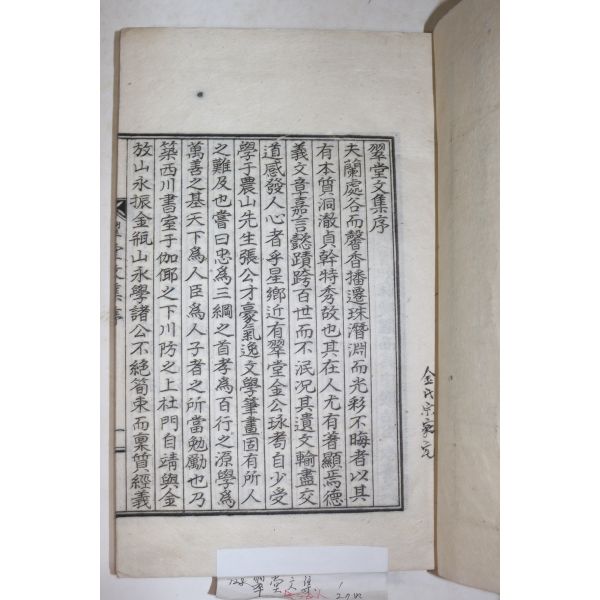 翠堂文集序
夫蘭處谷而馨香播遷珠潛淵而光彩不晦者以其
有本質洞澈貞幹特秀故也其在人尤有著顯焉德
義文章嘉言懿蹟跨百世而不泯况其遺文輪盡交
道感發人心者乎星鄕近有翠堂金公琭耈自少受
學于農山先生張公才豪氣逸文學筆畫固有所人
之難及也嘗曰忠爲三綱之首孝爲百行之源學爲
萬善之基天下爲人臣爲人子者之所當勉勵也乃
築西川書室于伽倻之下川防之上杜門自靖與金
放山永振金甁山永學諸公不絶筍束而稟質經義
翠堂文集序
一
金氏宗家
翠堂文集